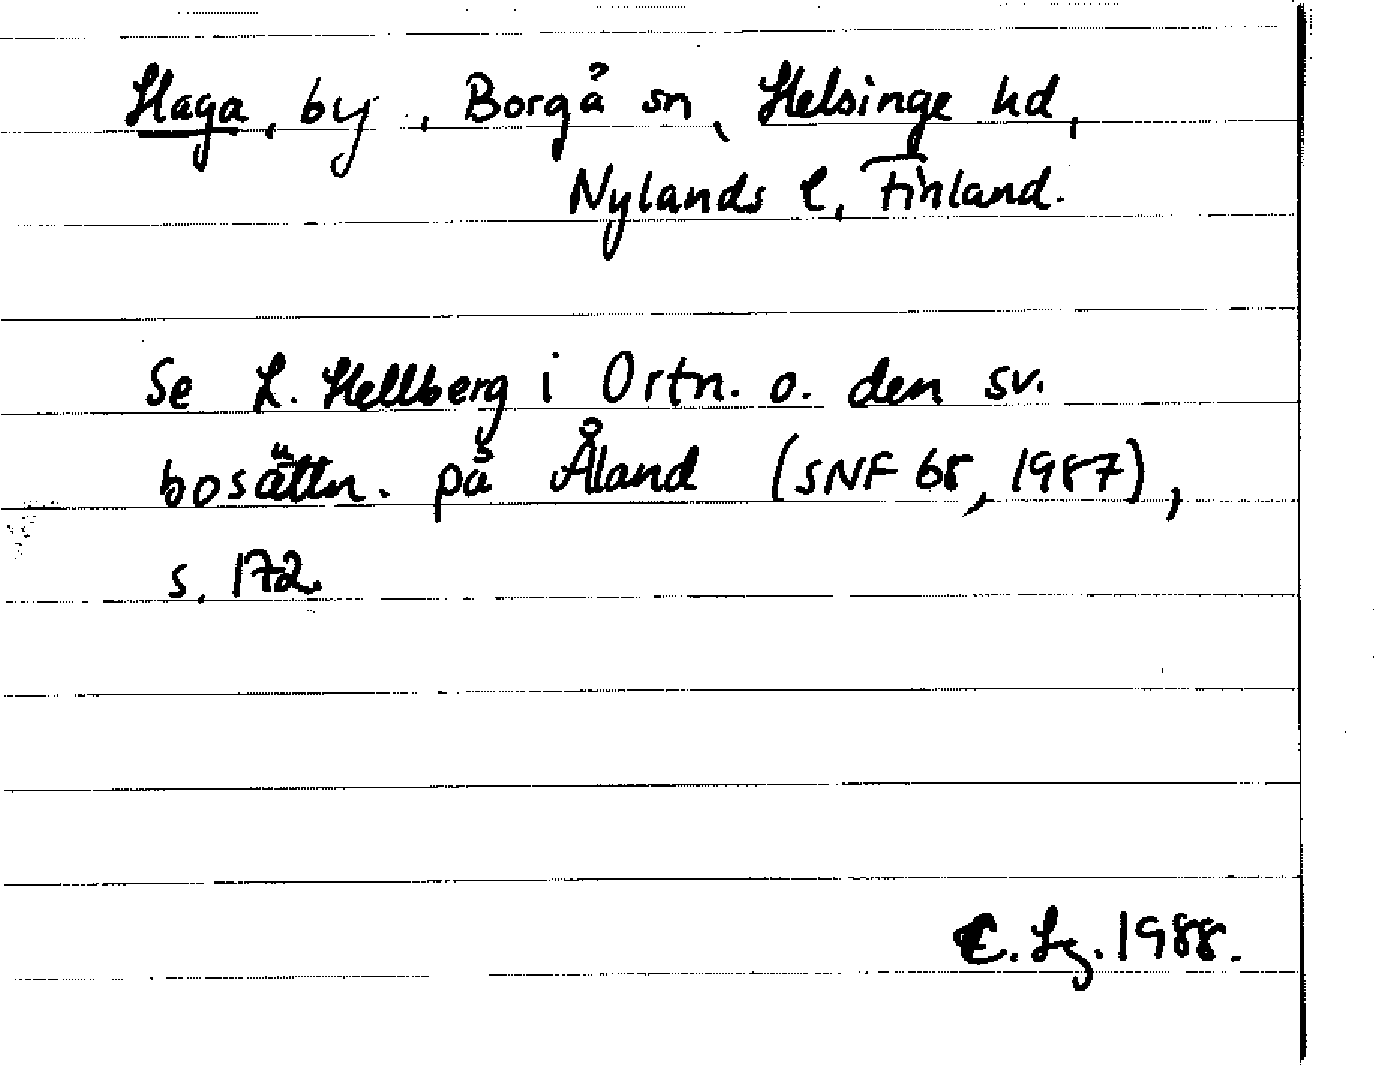 Haga, by, Borgå sn, Helsinge hd,
Nylands l, Finland.
Se L. Hellberg i Ortn. o. den sv.
bosättn. på Åland (SNF 68, 1987),
s. 172.
C. Lg. 1988.